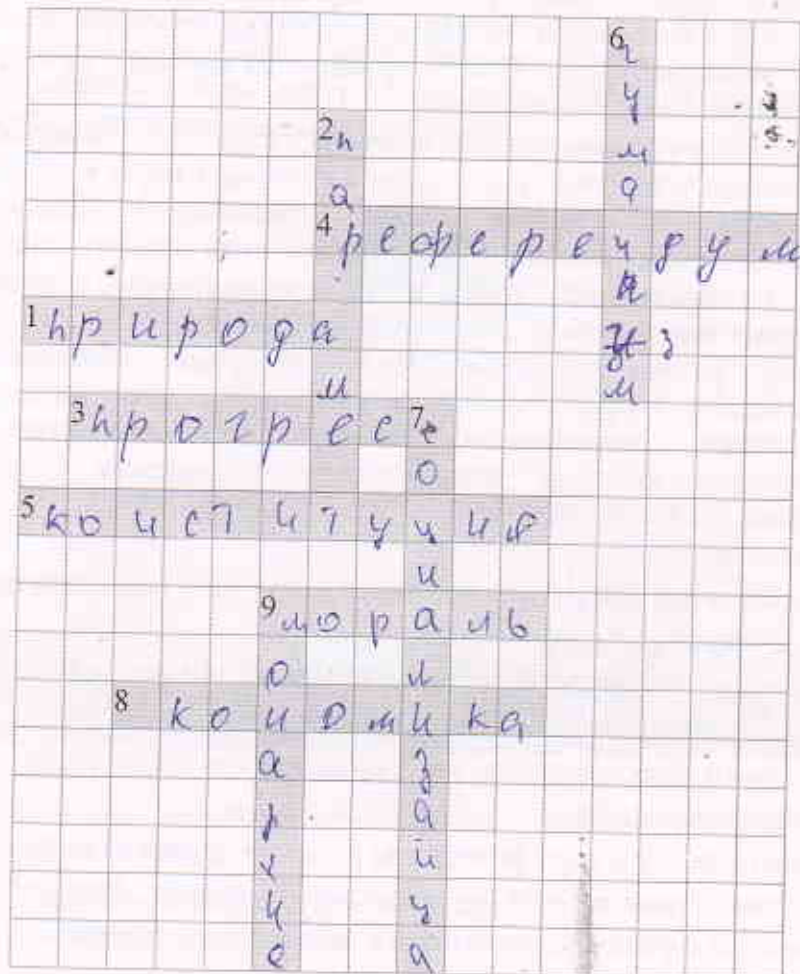 6 гуманизм
2 па
4 референдум
1 природа
3 прогресс
7 социализация
5 конституция
9 мораль
9 монархия
8 кономика